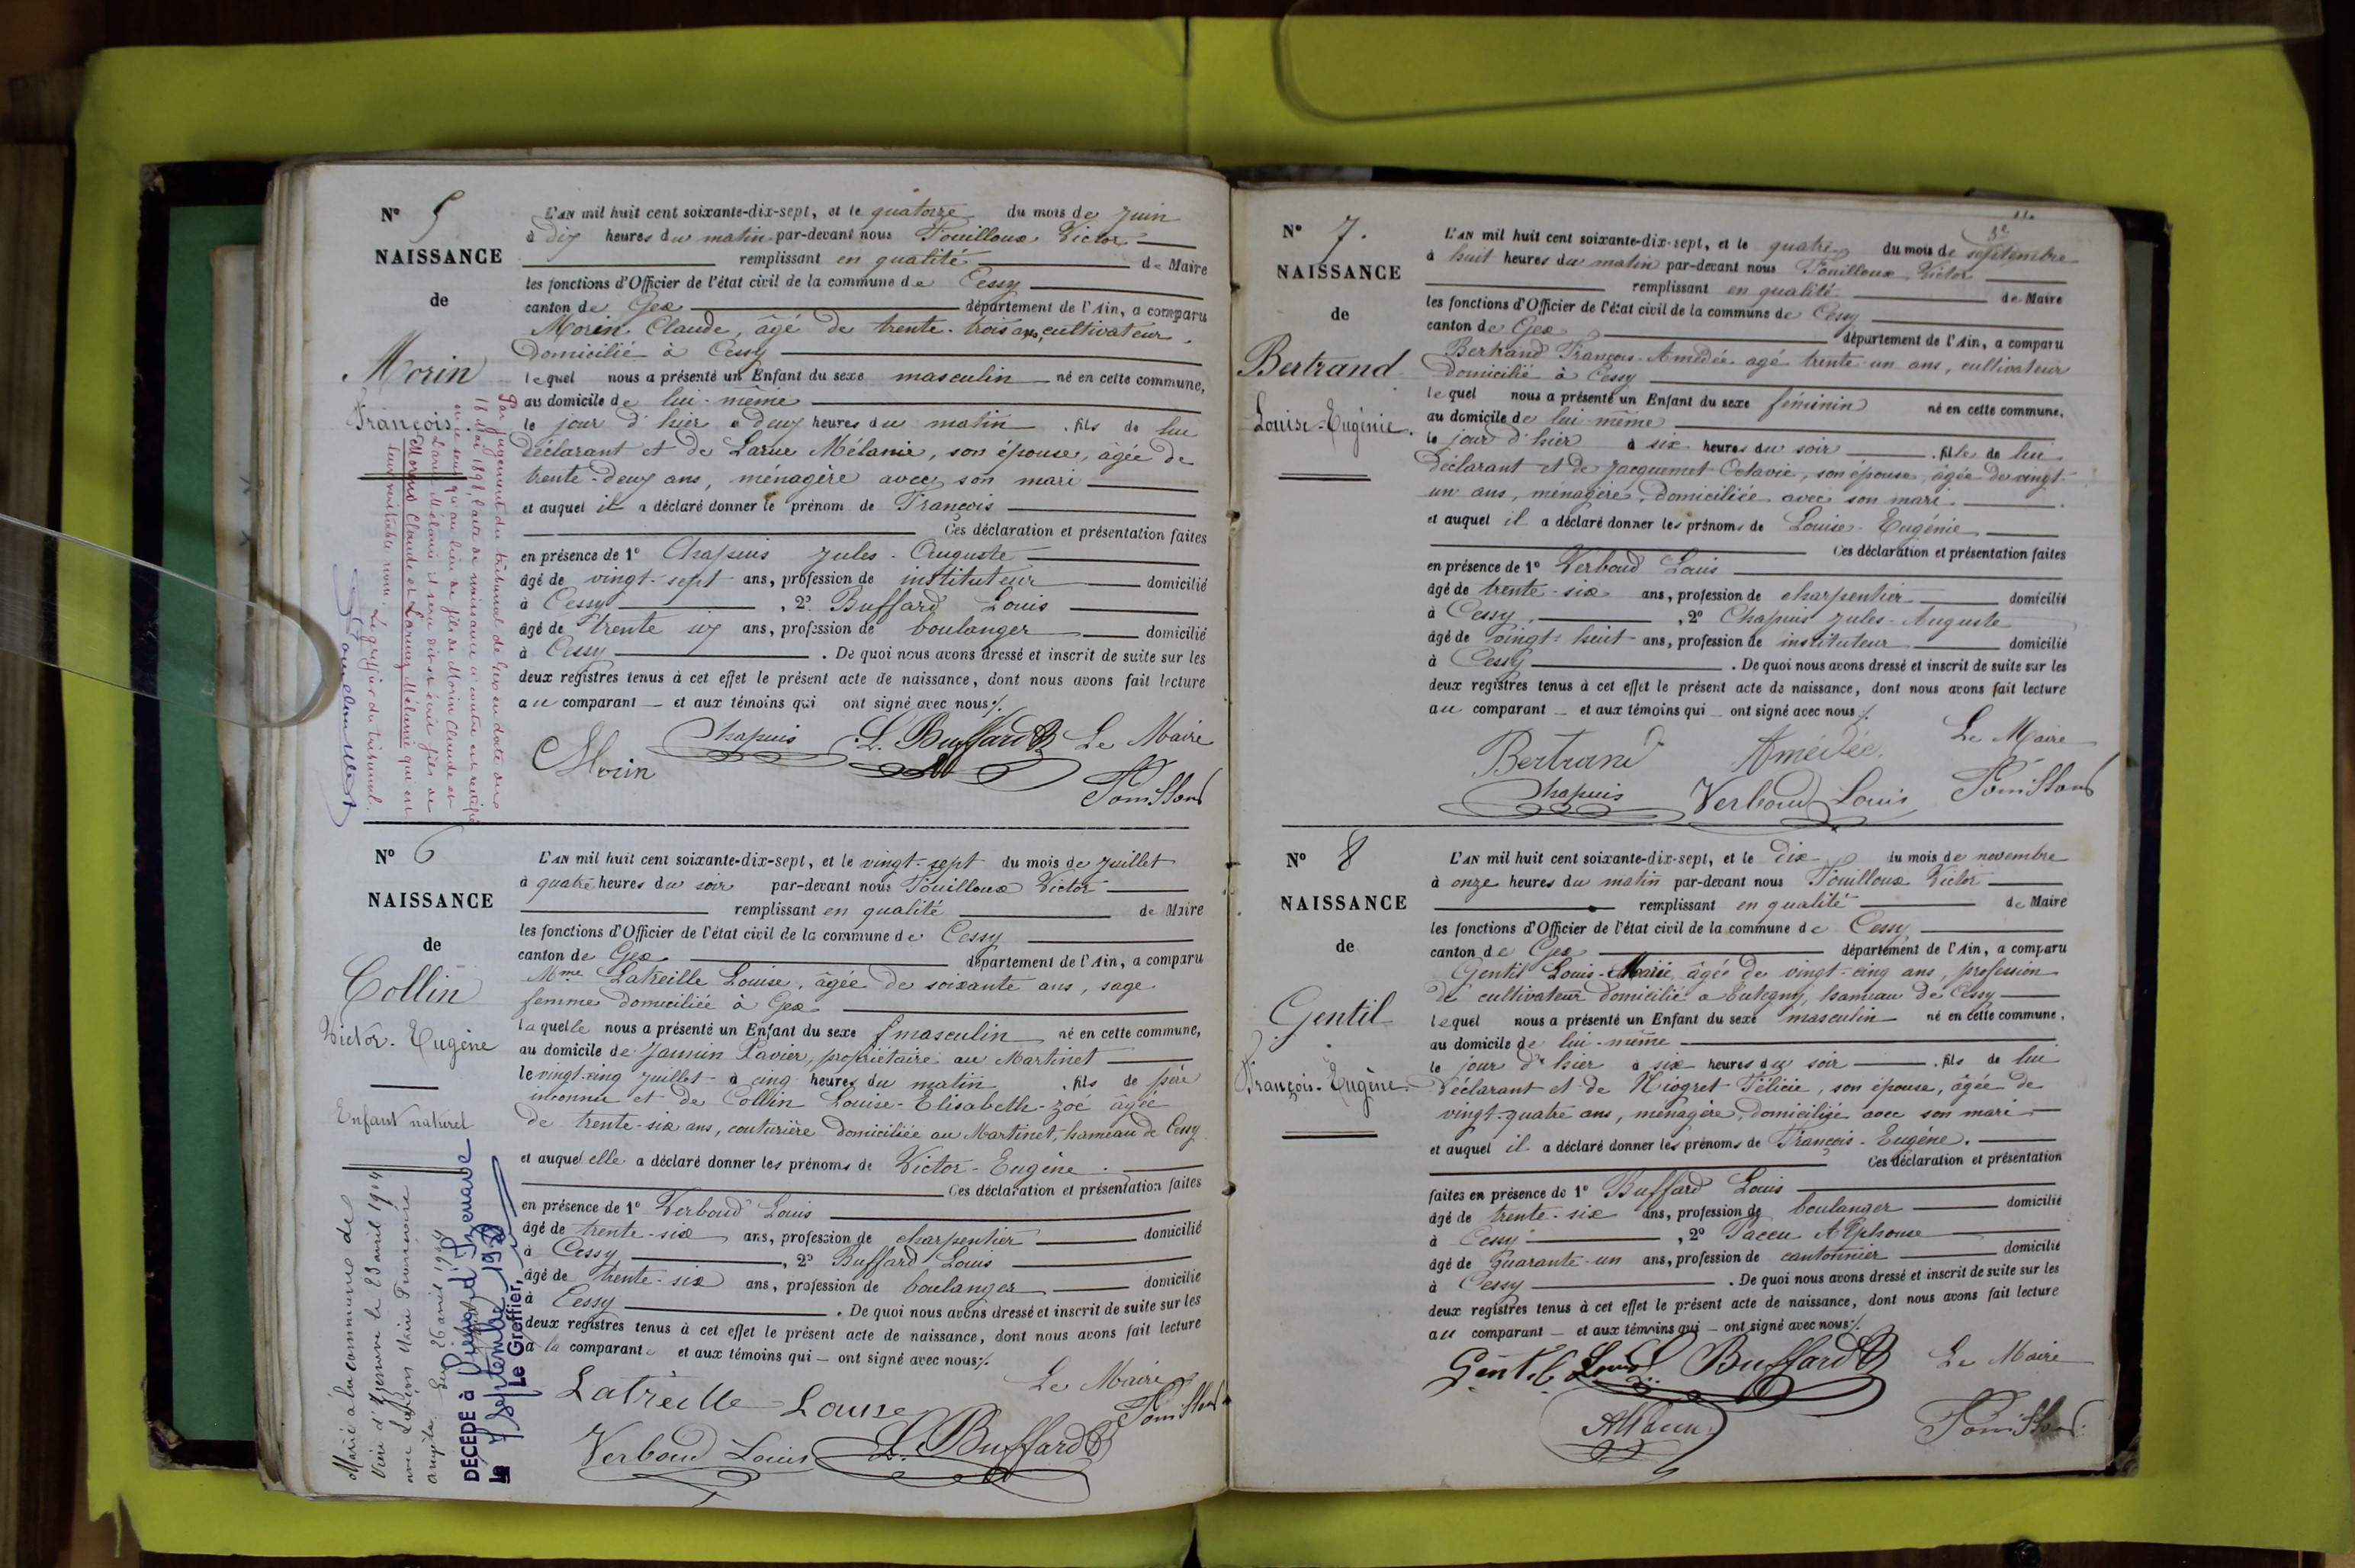 N° 5
NAISSANCE
de
Morin
François.
L'AN mil huit cent soixante-dix-sept, et le quatorze du mois de Juin
à dix heures du matin par-devant nous Fouilloux Victor
remplissant en qualité de Maire
les fonctions d'Officier de l'état civil de la commune de Cessy
canton de Gex département de l'Ain, a comparu
Morin Claude, âgé de trente-trois ans, cultivateur,
domicilié à Cessy
lequel nous a présenté un Enfant du sexe masculin né en cette commune,
au domicile de lui-même
le jour d'hier à deux heures du matin, fils de lui
déclarant et de Larue Mélanie, son épouse, âgée de
trente-deux ans, ménagère avec son mari
et auquel il a déclaré donner le prénom de François
Ces déclaration et présentation faites
en présence de 1° Chapuis Jules-Auguste
âgé de vingt-sept ans, profession de instituteur domicilié
à Cessy, 2° Buffard Louis
âgé de trente six ans, profession de boulanger domicilié
à Cessy. De quoi nous avons dressé et inscrit de suite sur les
deux registres tenus à cet effet le présent acte de naissance, dont nous avons fait lecture
au comparant et aux témoins qui ont signé avec nous
Morin Chapuis L. Buffard Le Maire
Fouilloux
Par jugement du tribunal de Gex en date du
18 Mai 1898, l'acte de naissance ci contre est rectifié
en ce sens qu'au lieu de fils de Morin Claude et
Larue Mélanie il sera dit et écrit fils de
Claude et Mélanie qui est
leur véritable nom. Le greffier du tribunal.
N° 6
NAISSANCE
de
Collin
Victor-Eugène
Enfant naturel
L'AN mil huit cent soixante-dix-sept, et le vingt-sept du mois de Juillet
à quatre heures du soir par-devant nous Fouilloux Victor
remplissant en qualité de Maire
les fonctions d'Officier de l'état civil de la commune de Cessy
canton de Gex département de l'Ain, a comparu
Mme Latreille Louise, âgée de soixante ans, sage
femme domiciliée à Gex
laquelle nous a présenté un Enfant du sexe masculin né en cette commune,
au domicile de Xavier, propriétaire au Martinet
le vingt-cinq Juillet à cinq heures du matin, fils de père
inconnu et de Collin Louise-Elisabeth-Zoé âgée
de trente-six ans, couturière domiciliée au Martinet, hameau de Cessy
et auquel elle a déclaré donner les prénoms de Victor-Eugène.
Ces déclaration et présentation faites
en présence de 1° Verboud Louis
âgé de trente-six ans, profession de charpentier domicilié
à Cessy, 2° Buffard Louis
âgé de trente-six ans, profession de boulanger domicilié
à Cessy. De quoi nous avons dressé et inscrit de suite sur les
deux registres tenus à cet effet le présent acte de naissance, dont nous avons fait lecture
à la comparante et aux témoins qui ont signé avec nous
Latreille Louise Le Maire
Verboud Louis L. Buffard Fouilloux
Marié à la commune de
le 23 avril 1914
avec Marie
Gex 26 avril 1914
DÉCÉDÉ à
le 7 septembre
Le Greffier,
N° 7.
NAISSANCE
de
Bertrand
Louise-Eugénie.
L'AN mil huit cent soixante-dix-sept, et le quatre du mois de septembre
à huit heures du matin par-devant nous Fouilloux Victor
remplissant en qualité de Maire
les fonctions d'Officier de l'état civil de la commune de Cessy
canton de Gex département de l'Ain, a comparu
Bertrand François-Amédée agé trente-un ans, cultivateur
domicilié à Cessy
lequel nous a présenté un Enfant du sexe féminin né en cette commune,
au domicile de lui-même
le jour d'hier à six heures du soir, fille de lui
déclarant et de Jacquemet Octavie, son épouse, âgée de vingt-
un ans, ménagère, domiciliée avec son mari.
et auquel il a déclaré donner les prénoms de Louise-Eugénie
Ces déclaration et présentation faites
en présence de 1° Verboud Louis
âgé de trente-six ans, profession de charpentier domicilié
à Cessy, 2° Chapuis Jules-Auguste
âgé de vingt-huit ans, profession de instituteur domicilié
à Cessy. De quoi nous avons dressé et inscrit de suite sur les
deux registres tenus à cet effet le présent acte de naissance, dont nous avons fait lecture
au comparant et aux témoins qui ont signé avec nous
Bertrand Amédée Le Maire
Chapuis Verboud Louis Fouilloux
N° 8
NAISSANCE
de
Gentil
François-Eugène.
L'AN mil huit cent soixante-dix-sept, et le dix du mois de novembre
à onze heures du matin par-devant nous Fouilloux Victor
remplissant en qualité de Maire
les fonctions d'Officier de l'état civil de la commune de Cessy
canton de Gex département de l'Ain, a comparu
Gentil Louis-Marie, âgé de vingt-cinq ans, profession
de cultivateur domicilié a Tutegny, hameau de Cessy
lequel nous a présenté un Enfant du sexe masculin né en cette commune,
au domicile de lui-même
le jour d'hier à six heures du soir, fils de lui
déclarant et de Niogret Félicie, son épouse, âgée de
vingt-quatre ans, ménagère, domiciliée avec son mari
et auquel il a déclaré donner les prénoms de François-Eugène.
Ces déclaration et présentation
faites en présence de 1° Buffard Louis
âgé de trente-six ans, profession de boulanger domicilié
à Cessy, 2° Alphonse
âgé de quarante-un ans, profession de cantonnier domicilié
à Cessy. De quoi nous avons dressé et inscrit de suite sur les
deux registres tenus à cet effet le présent acte de naissance, dont nous avons fait lecture
au comparant et aux témoins qui ont signé avec nous
Gentil Louis Buffard Le Maire
Fouilloux